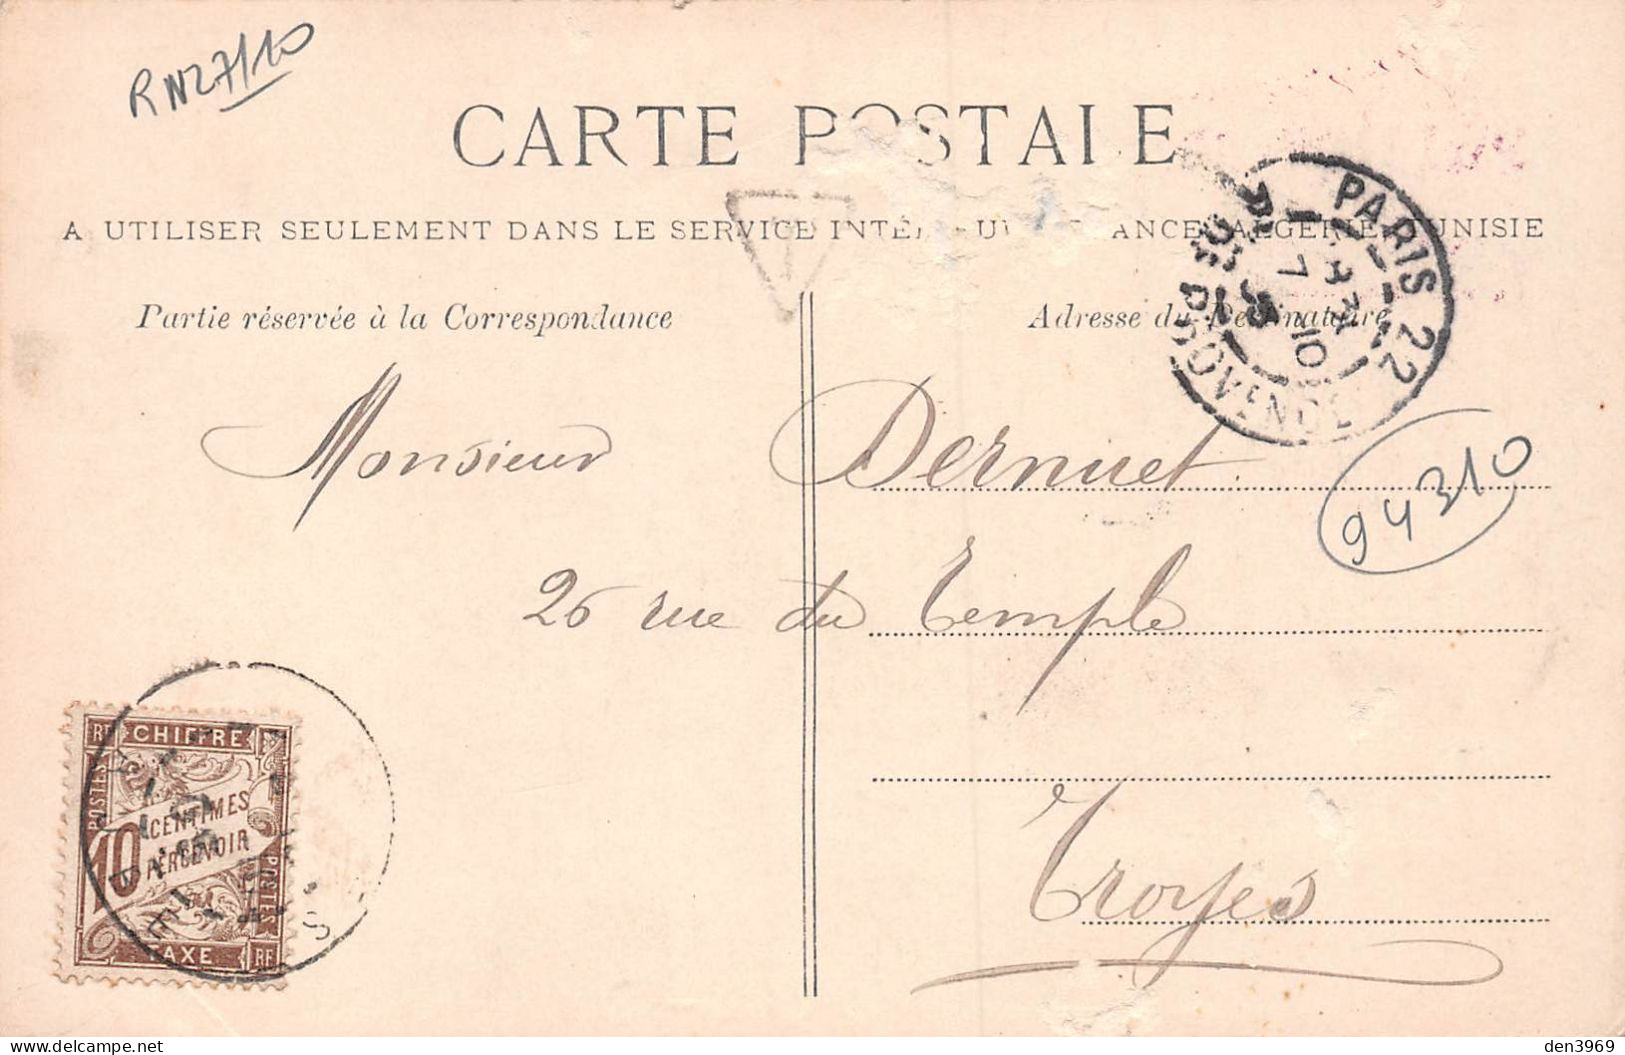 RN27/10
CARTE POSTALE
A UTILISER SEULEMENT DANS LE SERVICE INTÉ
ANCE, ALGÉRIE, TUNISIE
Partie réservée à la Correspondance
Adresse du Destinataire
PARIS 22
RUE DE PROVENCE
10
T
Monsieur Dernuet
94310
26 rue du Temple
Troyes
CHIFFRE
POSTES
10 CENTIMES
A PERCEVOIR
TAXE
RF
www.delcampe.net
den3969